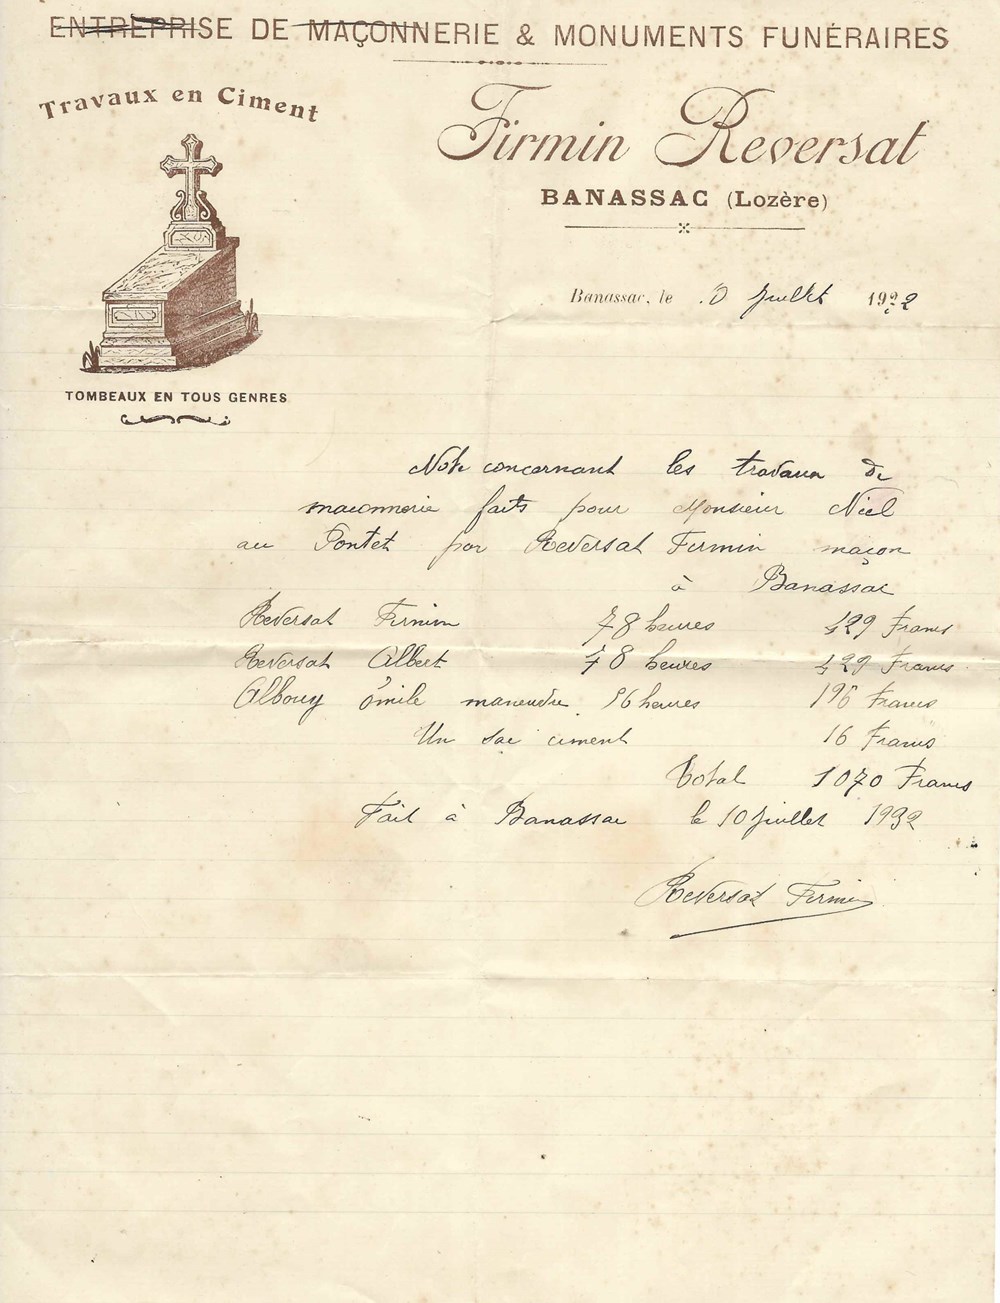 ENTREPRISE DE MAÇONNERIE & MONUMENTS FUNÉRAIRES
Travaux en Ciment
Firmin Reversat
BANASSAC (Lozère)
Banassac, le 10 Juillet 1932
TOMBEAUX EN TOUS GENRES
Note concernant les travaux de
maconnerie faits pour Monsieur Niel
au Pontet par Reversat Firmin maçon
à Banassac
Reversat Firmin 78 heures 429 Francs
Reversat Albert 78 heures 429 Francs
Albouy Émile maneuvre 56 heures 196 Francs
Un sac ciment 16 Francs
Total 1070 Francs
Fait à Banassac le 10 Juillet 1932
Reversat Firmin